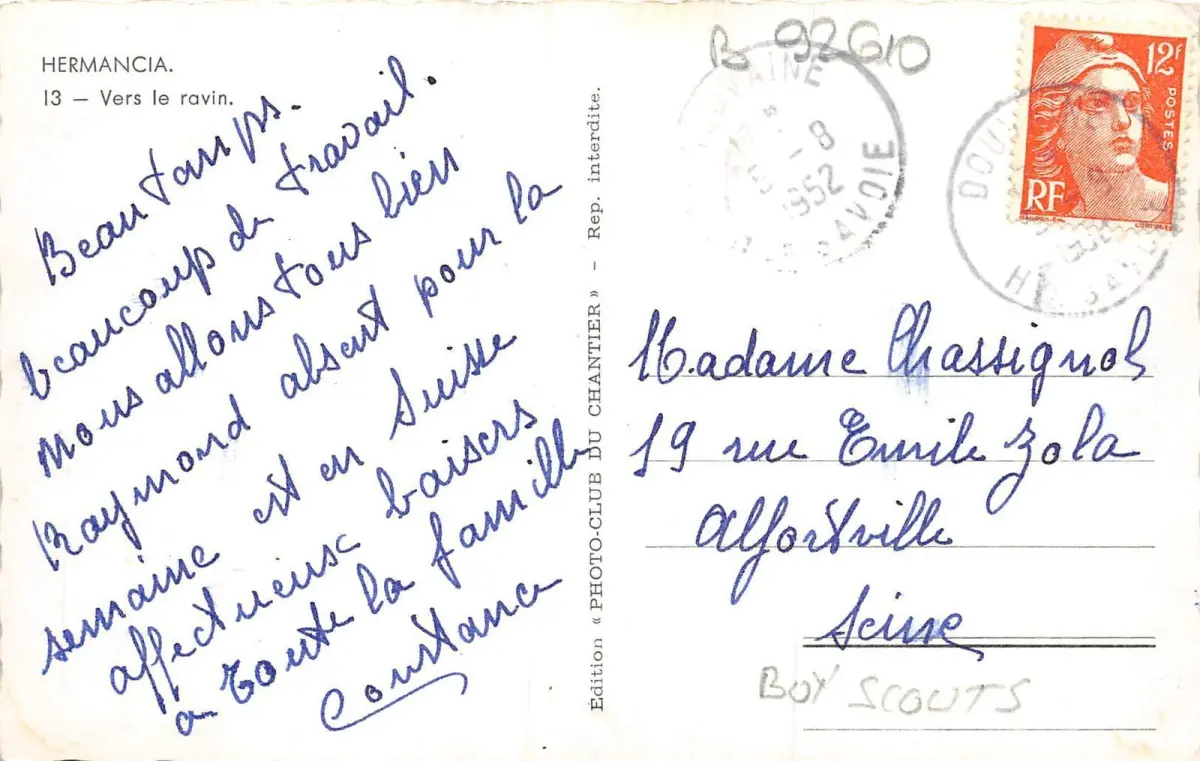 HERMANCIA.
13 — Vers le ravin.
Beau temps.
beaucoup de travail.
Nous allons tous bien
Raymond absent pour la
semaine est en Suisse
affectueux baisers
à toute la famille
Constance
Édition « PHOTO-CLUB DU CHANTIER » - Rep. interdite.
B 92610
8
1952
SAVOIE
12F
POSTES
RF
Madame Chassignol
19 rue Emile Zola
Alfortville
Seine
BOY SCOUTS